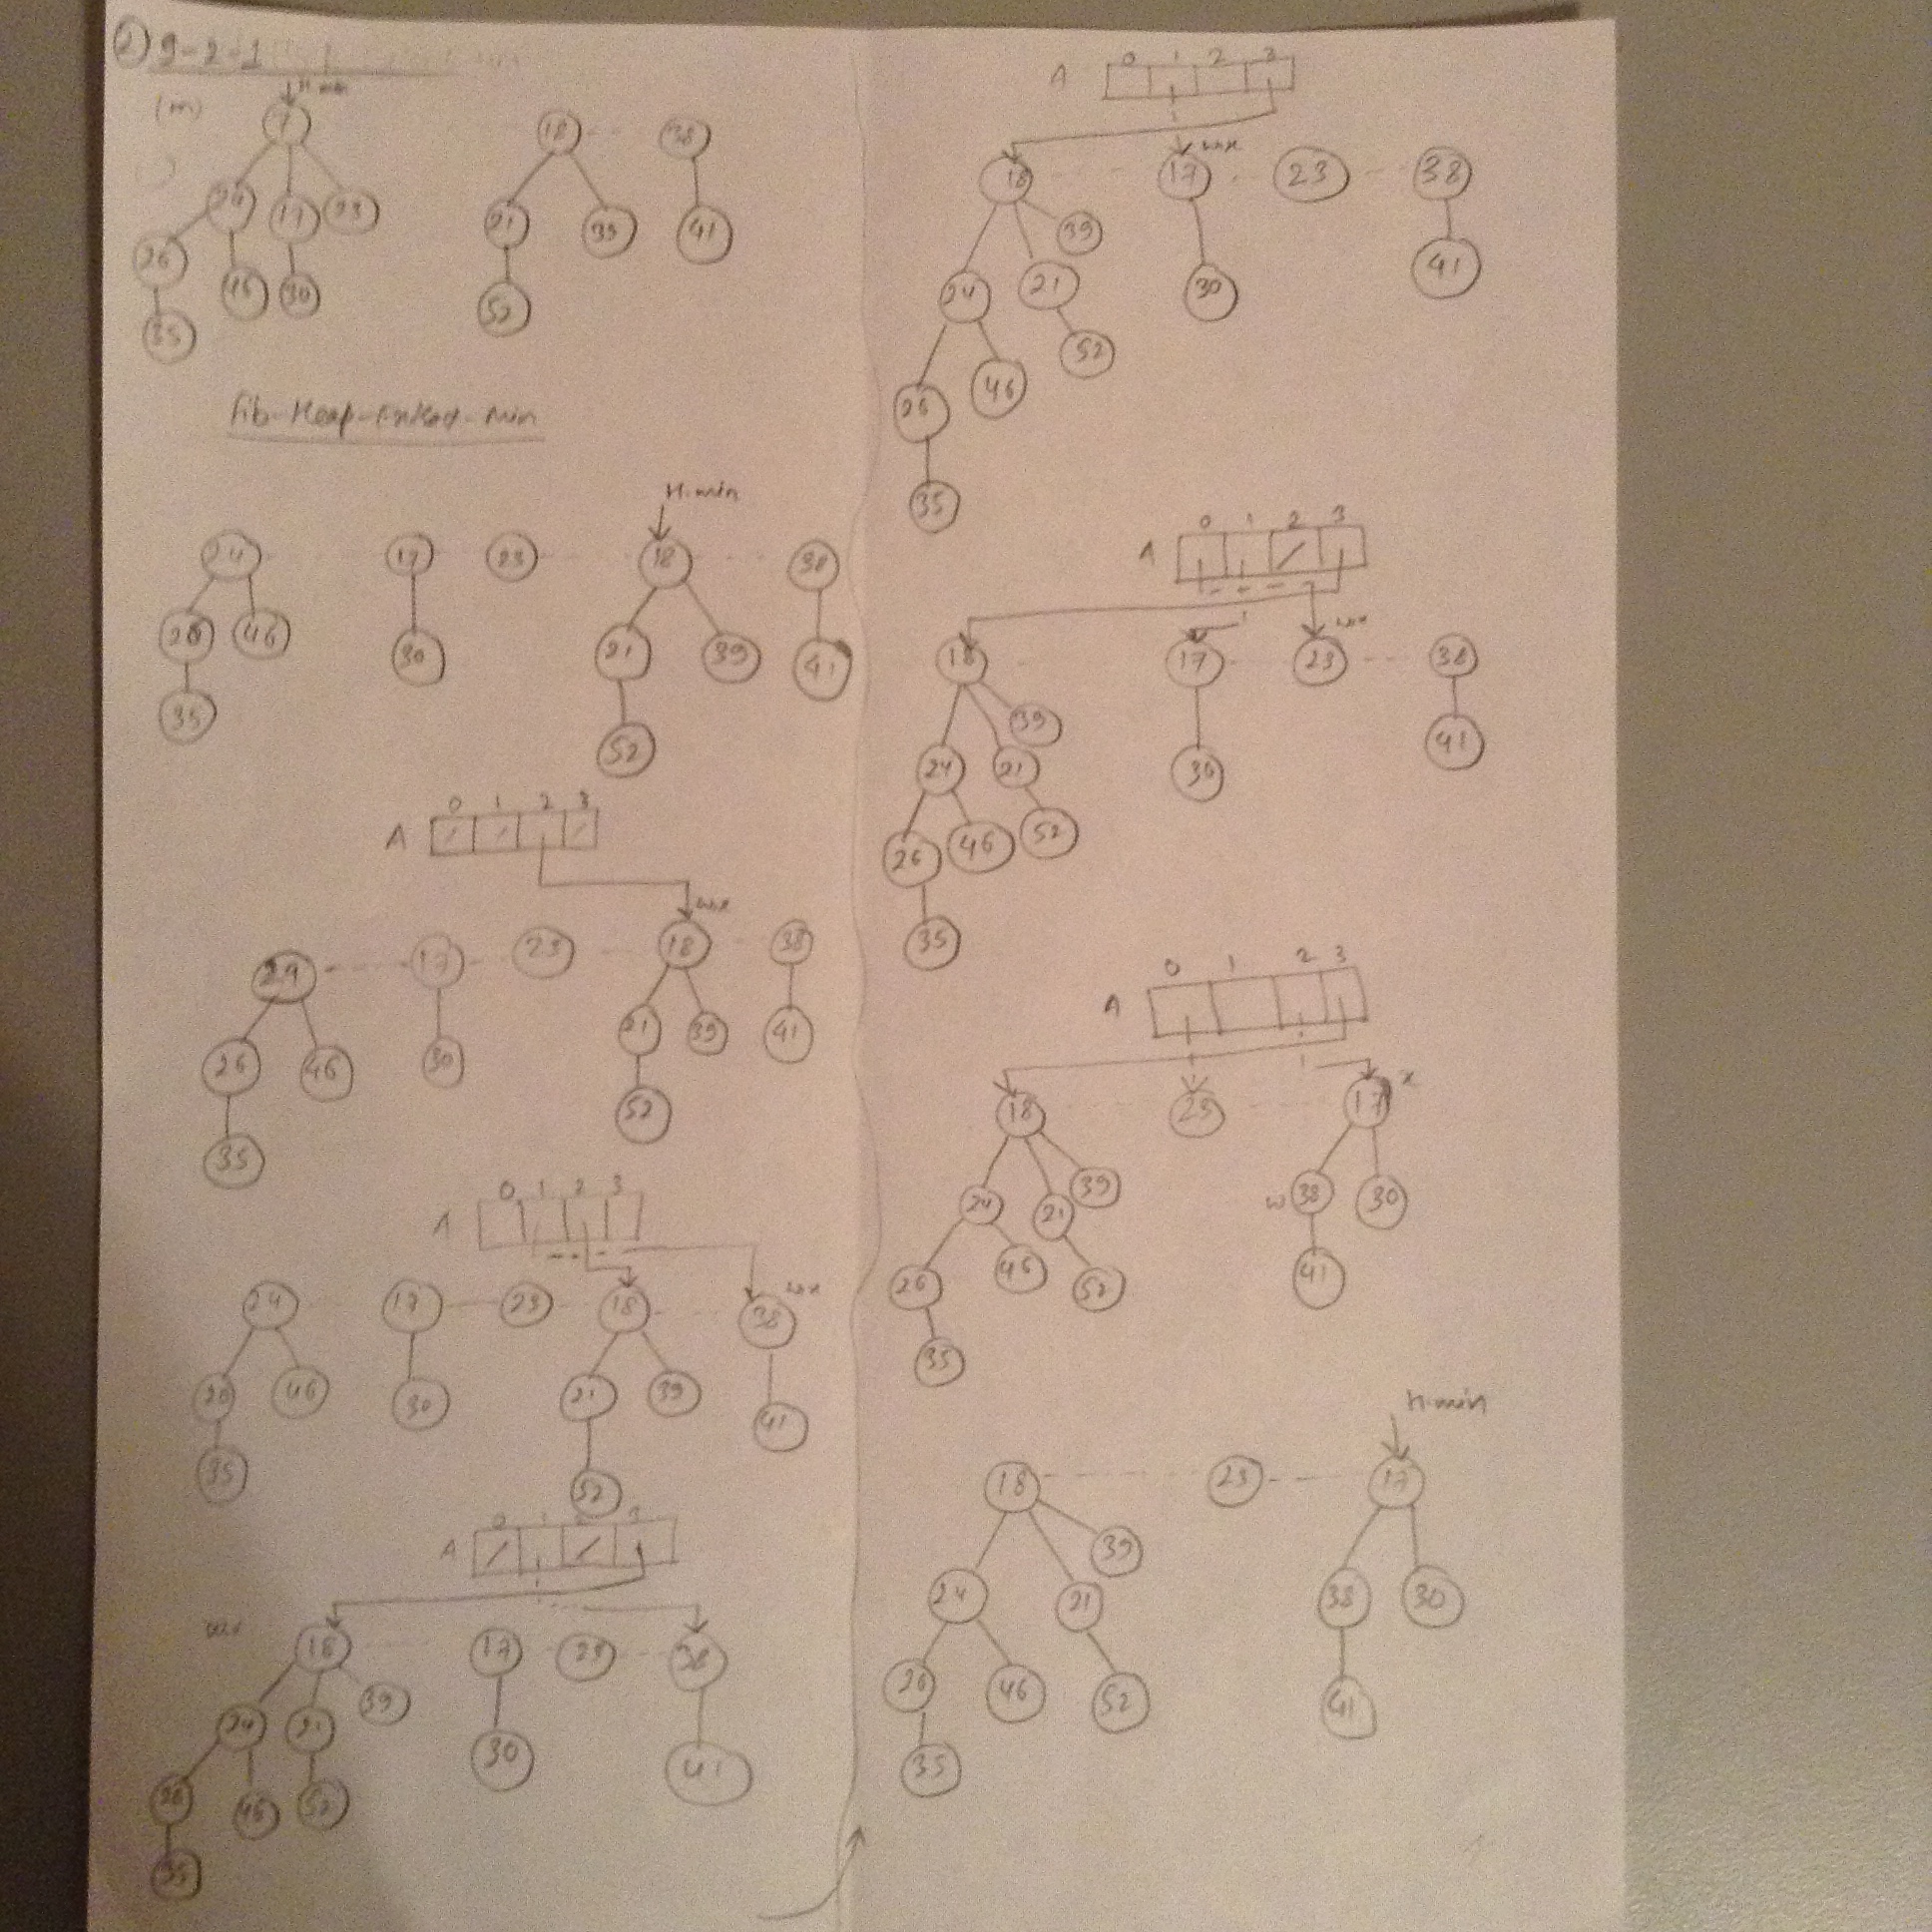 2) 9-2-1
H.min
(m)
7 18 38
24 17 23 21 39 41
26 46 30 52
35
Fib-Heap-Extract-Min
H.min
24 17 23 18 38
26 46 30 21 39 41
35 52
0 1 2 3
A
w,x
24 17 23 18 38
26 46 30 21 39 41
35 52
0 1 2 3
A
w,x
24 17 23 18 38
26 46 30 21 39 41
35 52
0 1 2 3
A
w,x
18 17 23 38
39
24 21 30 41
26 46 52
35
0 1 2 3
A
w,x
18 17 23 38
39
24 21 30 41
52
26 46
35
0 1 2 3
A
w,x
18 17 23 38
39
24 21 30 41
26 46 52
35
0 1 2 3
A
x
18 23 17
39
24 21 w 38 30
26 46 52 41
35
H.min
18 23 17
39
24 21 38 30
26 46 52 41
35